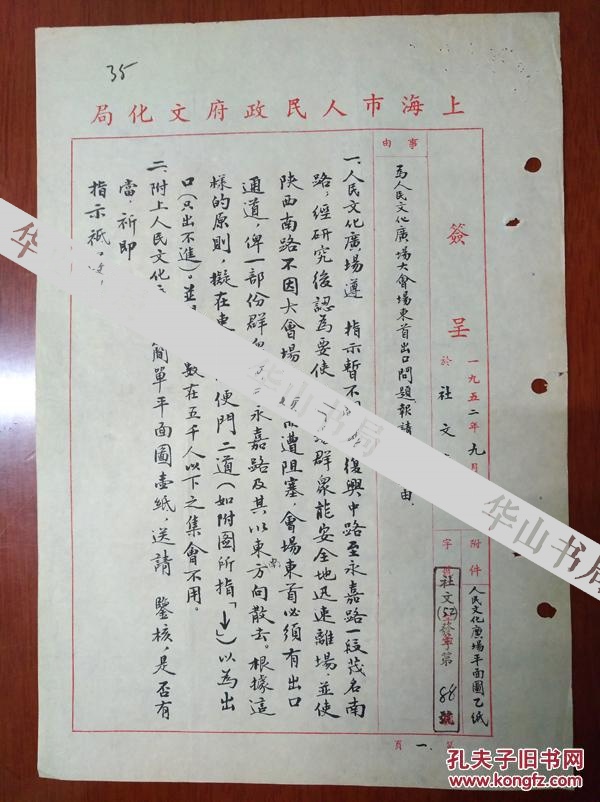 35
上海市人民政府文化局
簽呈
一九五二年九月
於社文
附件
人民文化廣場平面圖乙紙
字
社文(52)發字第88號
事由
為人民文化廣場大會場東首出口問題報請
由.
一.人民文化廣場遵 指示暫不
復興中路至永嘉路一段茂名南
路,經研究後認為要使
群眾能安全地迅速離場,並使
陝西南路不因大會場
而遭阻塞,會場東首必須有出口
通道,俾一部份群
永嘉路及其以東方向散去。根據這
樣的原則,擬在東
便門二道(如附圖所指「↓」)以為出
口(只出不進)。並
數在五千人以下之集會不用。
二.附上人民文化
簡單平面圖壹紙,送請 鑒核,是否有
當,祈即
指示祇
第一.頁
华山书局
华山书局
华山书局
孔夫子旧书网
www.kongfz.com